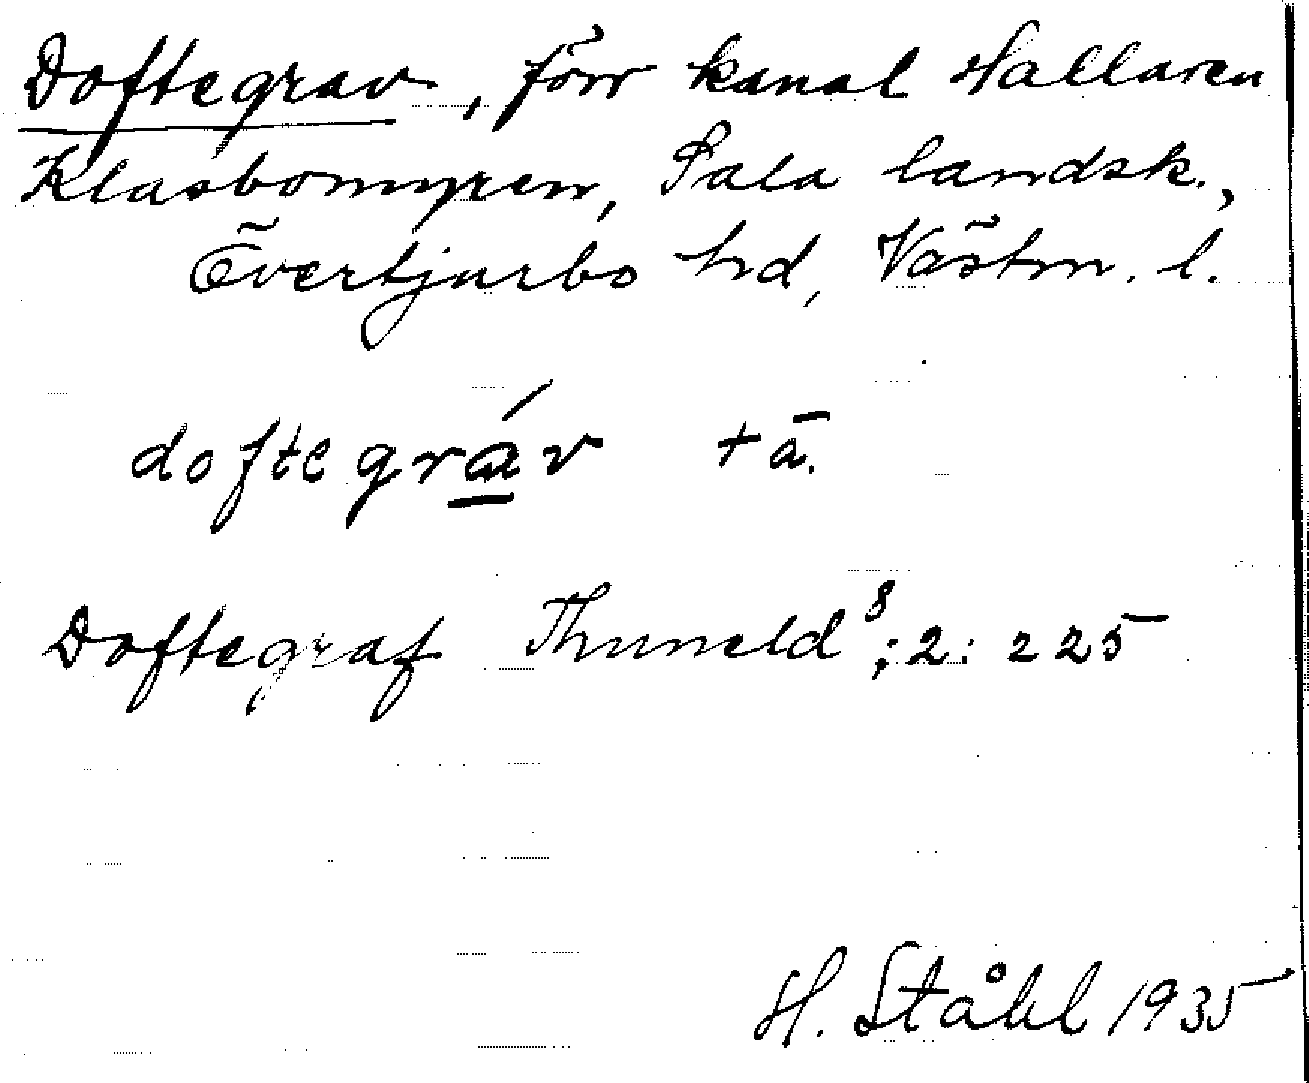 Doftegrav, förr kanal Hallaren
Klasbomyren, Sala landsk.,
Övertjurbo hd, Västm. l.
doftegrá̱v + ā.
Doftegraf Tuneld⁸; 2: 225
H. Ståhl 1935